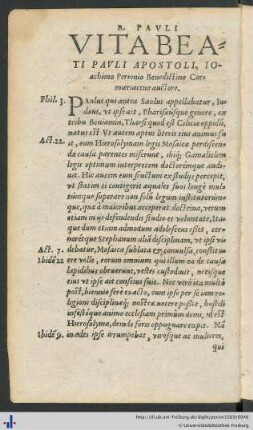 B. PAVLI
VITA BEA-
TI PAVLI APOSTOLI, IO-
achimo Perionio Benedictino Cor-
moeriaceno auctore.
Phil. 3. PAulus qui antea Saulus appellabatur, Iu-
daeus, vt ipse ait, Pharisaeusque genere, ex
tribu Beniamin, Tharsi quod est Ciliciae oppidū,
natus est. Vt autem aptus literis eius animus fu
Act. 22. it, eum Hierosolymam legis Mosaicae perdiscendę
causa parentes miserunt, ibiq; Gamalielem
legis optimum interpretem doctoremque audi-
uit. Hic autem eum fructum ex studijs percepit,
vt statim ei contigerit aequales suos longè multū
numque superare non solū legum institutorum-
que, quae à maioribus acceperat, doctrina, verum
etiam in ijs defendendis studio et voluntate, Ita-
que dum etiam admodum adolescens esset, cer-
neretque Stephanum aliā disciplinam, vt ipsi vi-
Act. 7. debatur, Mosaica sublata et conuulsa, constitu-
Ibidē 22 ere velle, eorum omnium qui illum ea de causa
lapidibus obruerunt, vestes custodiuit, necisque
eius vt ipse ait conscius fuit. Nec verò ita multò
pòst, biennio ferè exacto, cum ipse per se iam re-
ligioni disciplinęq; nostrae nocere posset, hostili
infestóque animo ecclesiam primùm domi, id est
Hierosolymę, deinde foris oppugnare coepit. Nā
Ibidē 9. in aedes ipse irrumpebat, virosque ac mulieres,
qui
http://dl.ub.uni-freiburg.de/diglit/perion1569/0046
© Universitätsbibliothek Freiburg